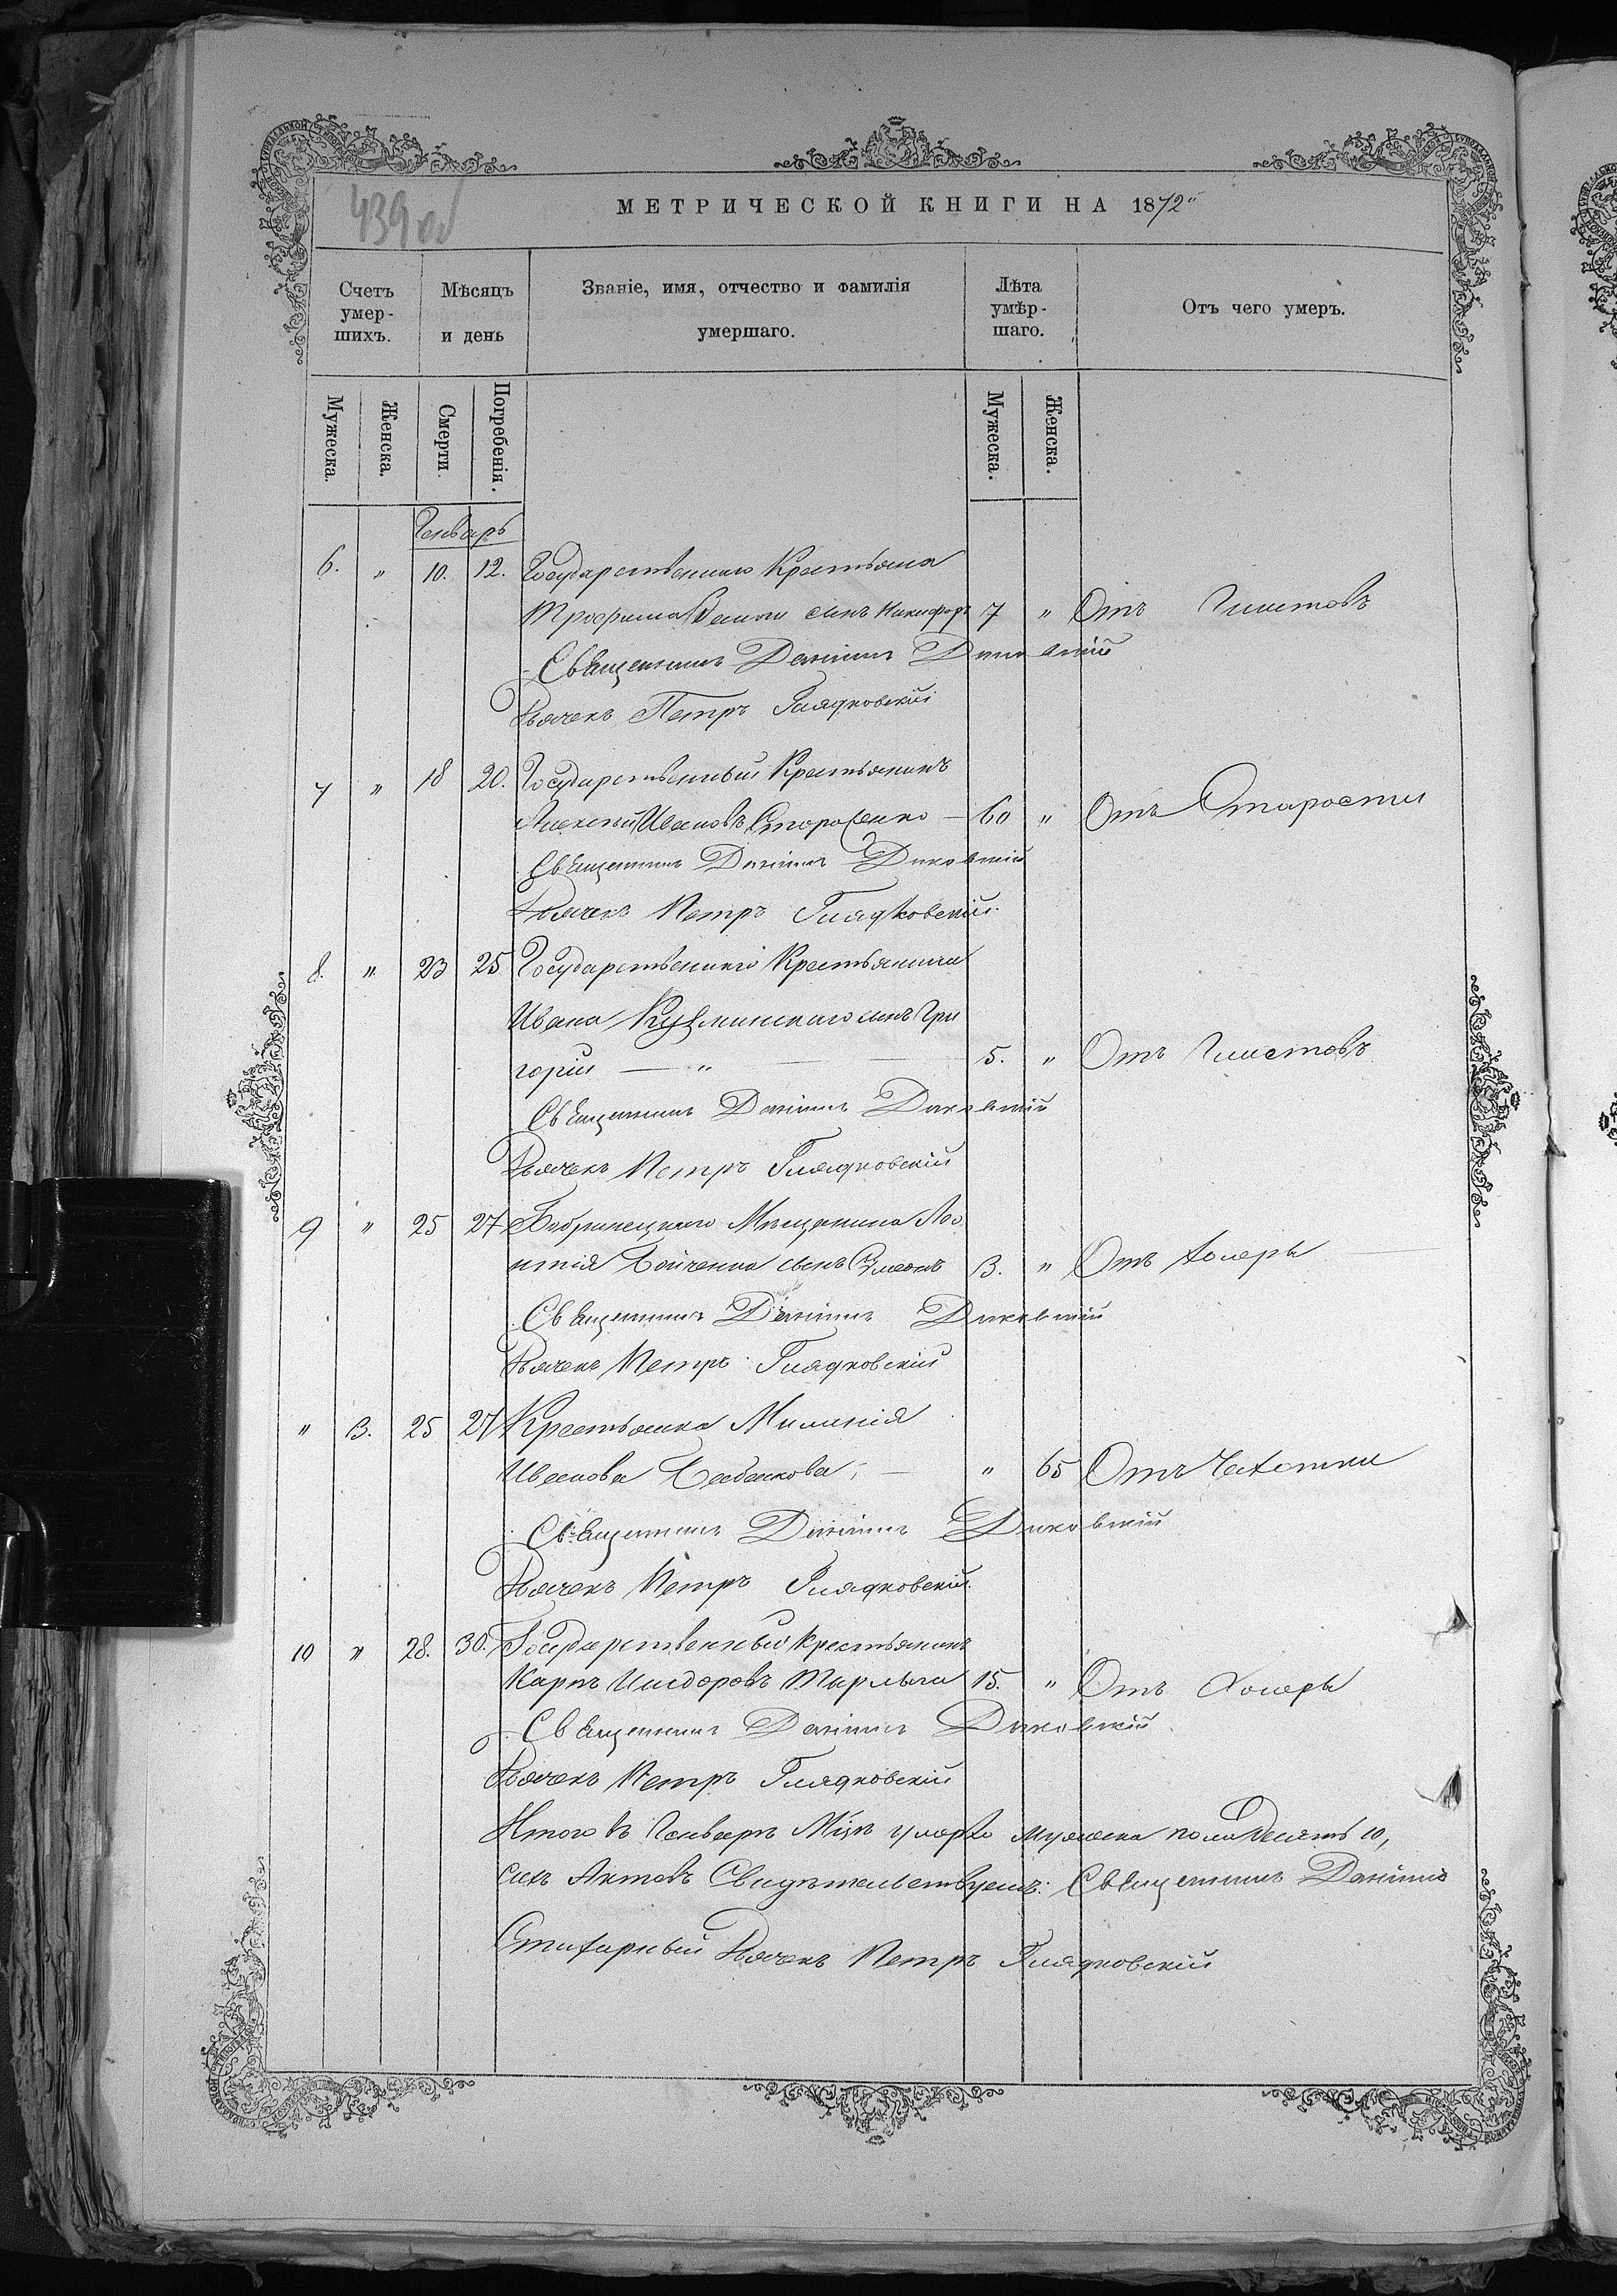 439 об
МЕТРИЧЕСКОЙ КНИГИ НА 1872
Счетъ умер-шихъ. Мѣсяцъ и день Званіе, имя, отчество и фамилія умершаго. Лѣта умѣр-шаго. Отъ чего умеръ.
Мужеска. Женска. Смерти. Погребенія. Мужеска. Женска.
Генварь
6. " 10. 12. Государственнаго Крестьяна
Трофима сынъ Никифоръ 7 " Отъ Глистовъ
Священникъ Даніилъ
Дьячекъ Петръ Глядковскій
7 " 18 20. Государственный Крестьянинъ
Алексѣй Ивановъ Стороженко — 60 " Отъ Старости
Священникъ Даніилъ
Дьячекъ Петръ Глядковскій.
8. " 23 25 Государственнаго Крестьянина
Ивана Кузминскаго сынъ Гри
горій — " — 5. " Отъ Глистовъ
Священникъ Даніилъ
Дьячекъ Петръ Глядковскій
9 " 25 27 Бобринецкаго Мѣщанина Ле
онтія Бойченка сынъ Симеонъ 3. " Отъ Холеры
Священникъ Даніилъ
Дьячекъ Петръ Глядковскій
" 3. 25 27 Крестьянка Миланія
Иванова — " 65 Отъ Чахотки
Священникъ Даніилъ
Дьячекъ Петръ Глядковскій.
10 " 28. 30. Государственный крестьянинъ
Карпъ Исидоровъ 15. " Отъ Холеры
Священникъ Даніилъ
Дьячекъ Петръ Глядковскій
Итого въ Генварѣ М-цѣ умерло Мужеска пола Десять 10,
сихъ Актовъ Свидѣтельствуемъ: Священникъ Даніилъ
Стихарный Дьячекъ Петръ Глядковскій